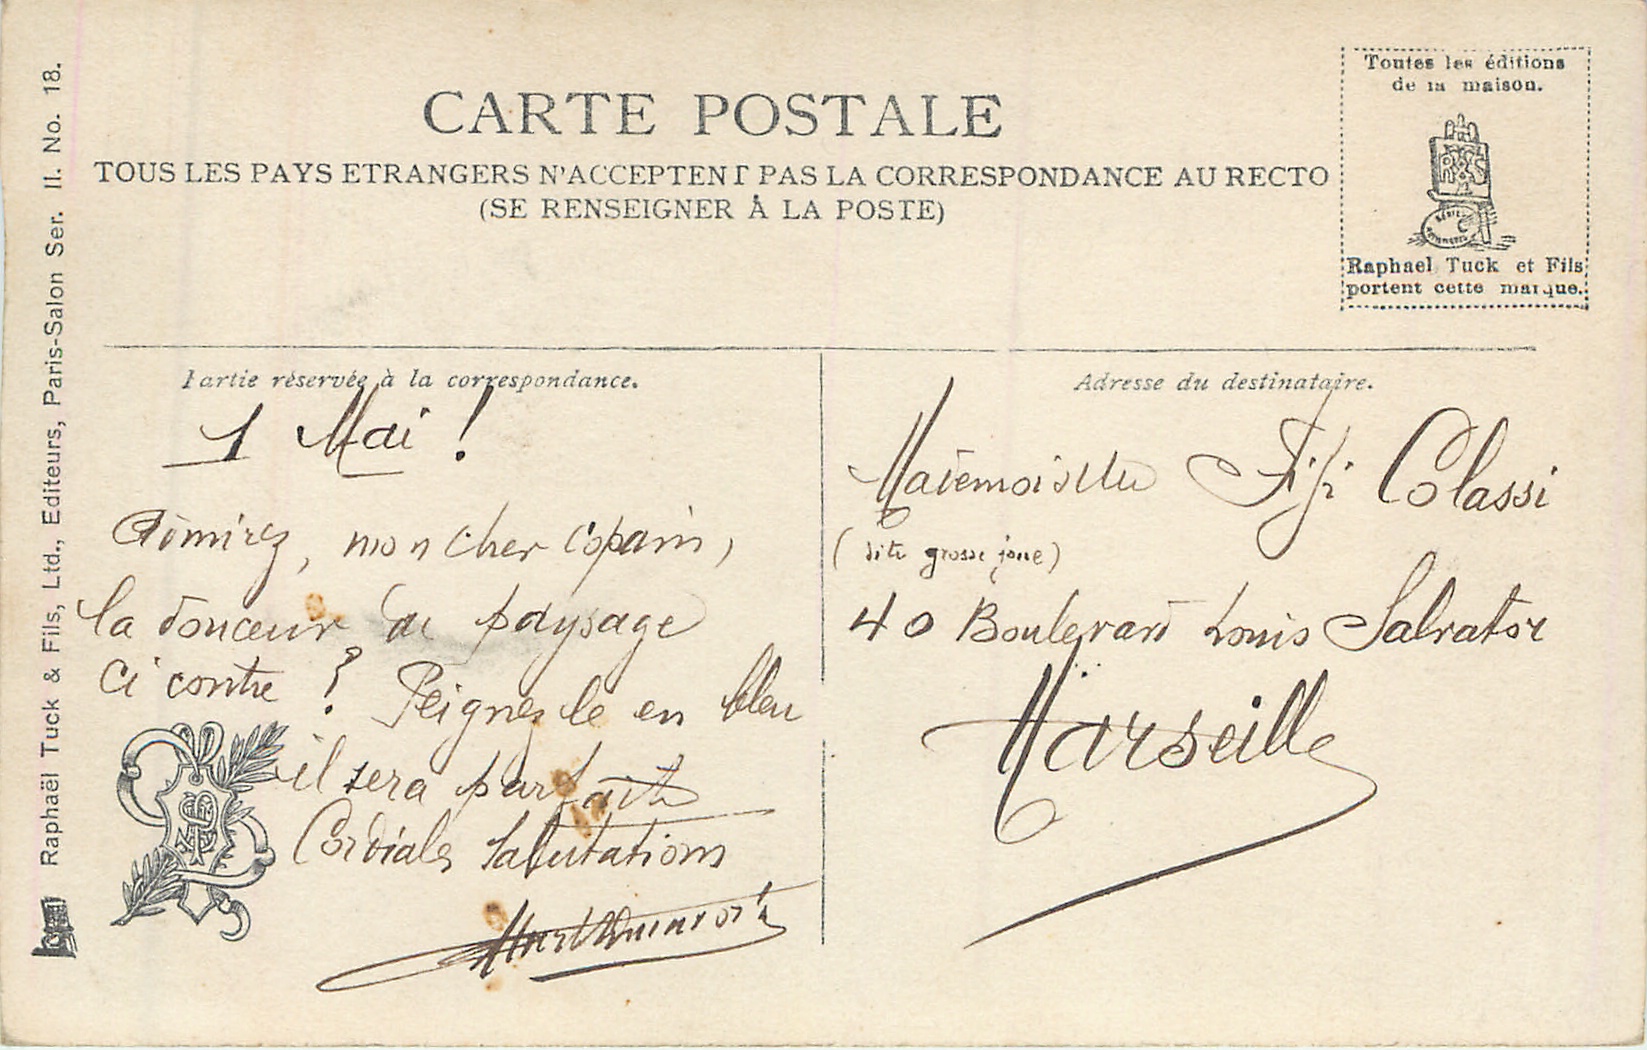 CARTE POSTALE
TOUS LES PAYS ETRANGERS N'ACCEPTENT PAS LA CORRESPONDANCE AU RECTO
(SE RENSEIGNER À LA POSTE)
Toutes les éditions
de la maison.
Raphael Tuck et Fils
portent cette marque.
Raphaël Tuck & Fils, Ltd., Editeurs, Paris-Salon Ser. II. No. 18.
Partie réservée à la correspondance.
1 Mai !
Admirez, mon cher copain,
la douceur du paysage
ci contre ? Peignez le en bleu
il sera parfait
Cordiales salutations
Adresse du destinataire.
Mademoiselle Fifi Colassi
(dite grosse joue)
40 Boulevard Louis Salvator
Marseille